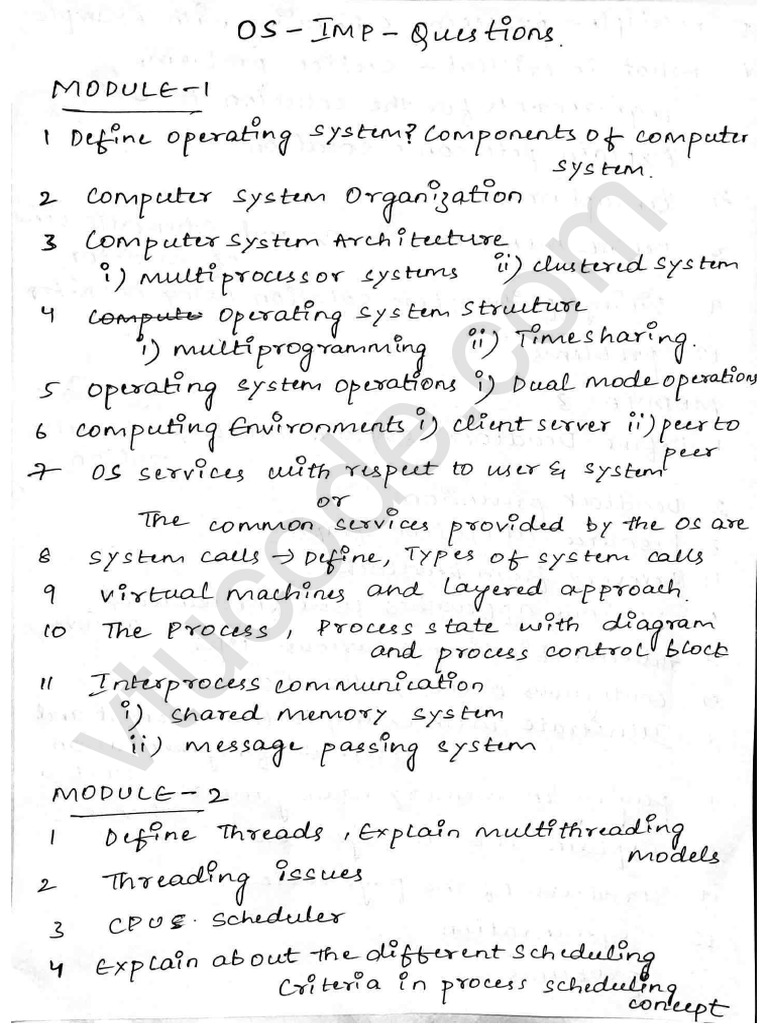 OS - IMP - Questions.
MODULE-1
1 Define operating system? Components of computer
system.
2 Computer System Organization
3 Computer System Architecture
i) multiprocessor systems ii) clustered system
4 Compute Operating System Structure
i) multiprogramming ii) Timesharing.
5 Operating system operations i) Dual mode operations
6 Computing Environments i) client server ii) peer to
peer
7 OS services with respect to user & system
or
The common services provided by the OS are
8 System calls → Define, Types of system calls
9 Virtual machines and Layered approach.
10 The Process, Process state with diagram
and process control block
11 Interprocess communication
i) shared memory system
ii) message passing system
MODULE - 2
1 Define Threads, Explain multithreading
models
2 Threading issues
3 CPU Scheduler
4 Explain about the different scheduling
Criteria in process scheduling
concept
vtucode.com